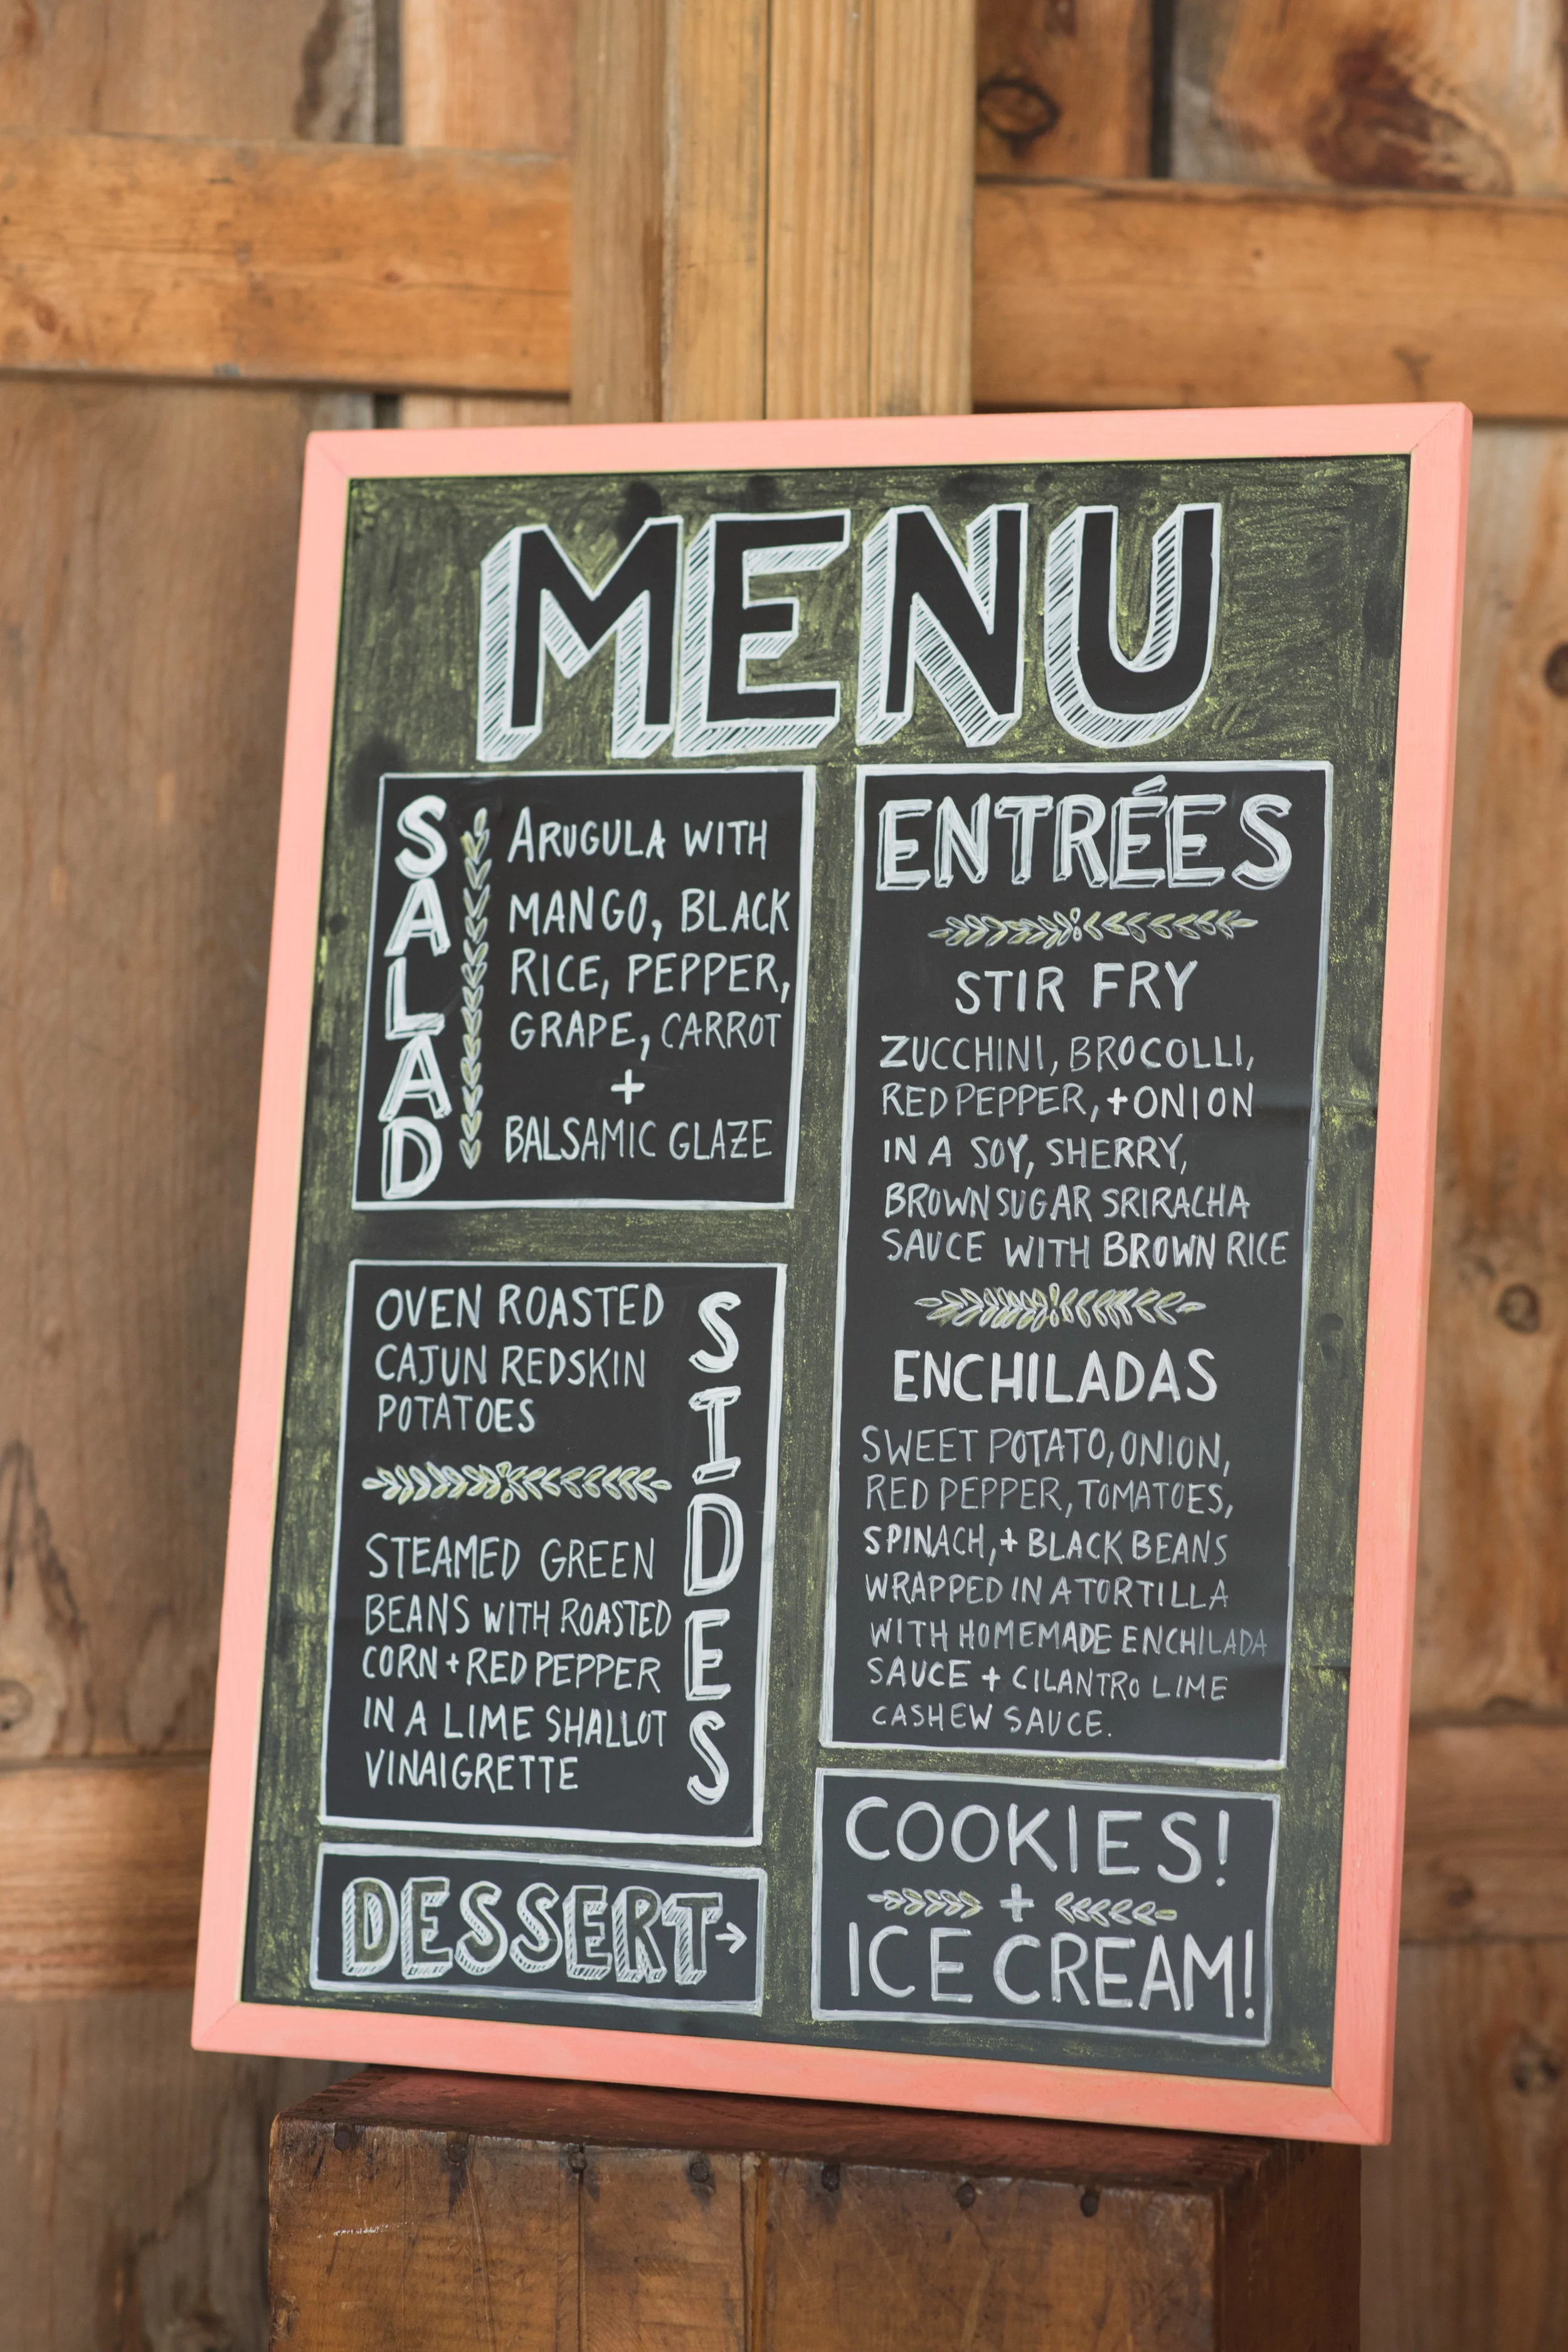 MENU
SALAD
ARUGULA WITH
MANGO, BLACK
RICE, PEPPER,
GRAPE, CARROT
+
BALSAMIC GLAZE
SIDES
OVEN ROASTED
CAJUN REDSKIN
POTATOES
STEAMED GREEN
BEANS WITH ROASTED
CORN + RED PEPPER
IN A LIME SHALLOT
VINAIGRETTE
ENTRÉES
STIR FRY
ZUCCHINI, BROCOLLI,
RED PEPPER, + ONION
IN A SOY, SHERRY,
BROWN SUGAR SRIRACHA
SAUCE WITH BROWN RICE
ENCHILADAS
SWEET POTATO, ONION,
RED PEPPER, TOMATOES,
SPINACH, + BLACK BEANS
WRAPPED IN A TORTILLA
WITH HOMEMADE ENCHILADA
SAUCE + CILANTRO LIME
CASHEW SAUCE.
DESSERT →
COOKIES!
+
ICE CREAM!